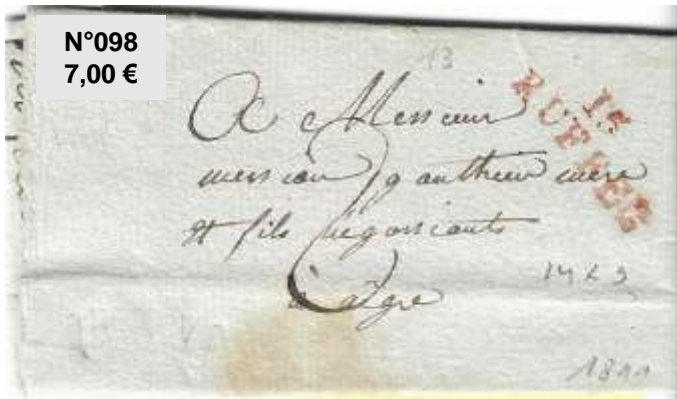 N°098
7,00 €
13
15
RUFFEC
A Messieurs
messieur gauthier mere
et fils negossiants
à aigre
1811